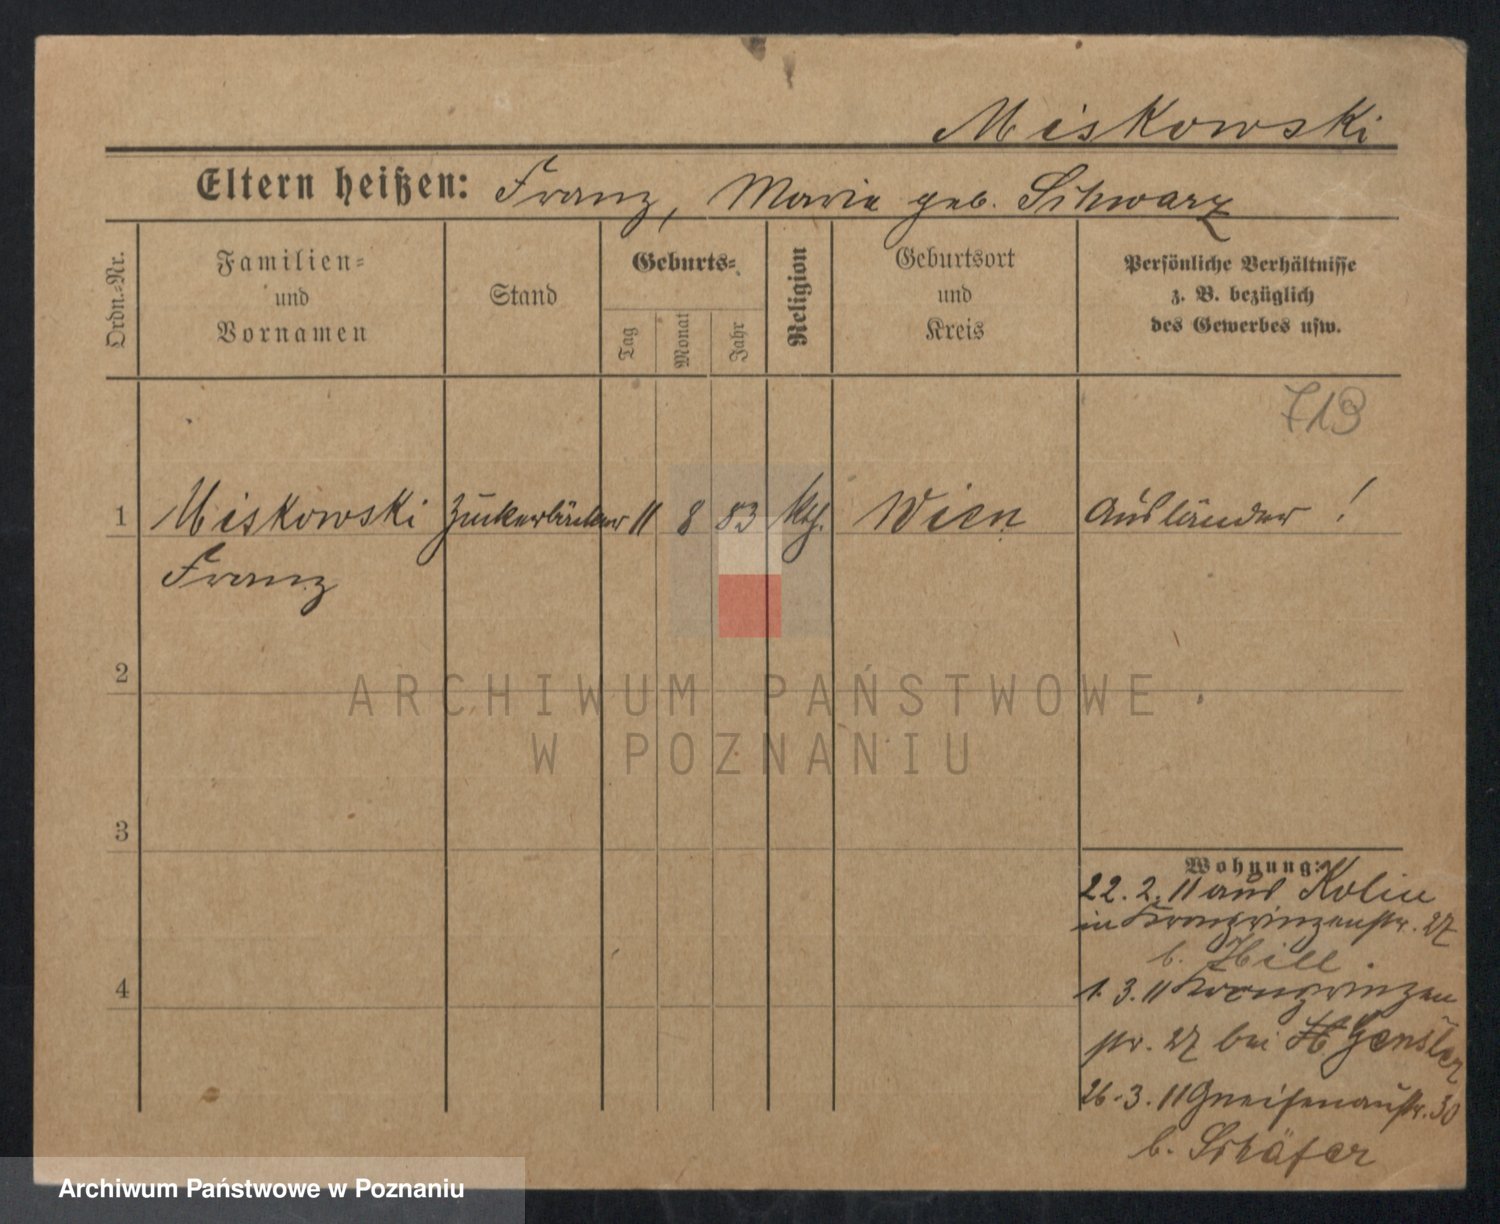 Miskowski
Eltern heißen: Franz, Marie geb. Schwarz
Ordn.-Nr.
Familien-
und
Vornamen
Stand
Geburts-
Tag
Monat
Jahr
Religion
Geburtsort
und
Kreis
Persönliche Verhältnisse
z. B. bezüglich
des Gewerbes usw.
713
1 Miskowski Zuckerbäcker 11 8 83 kth. Wien Ausländer !
Franz
2
ARCHIWUM PAŃSTWOWE
W POZNANIU
3
Wohnung:
22. 2. 11 aus Kolin
in Kronprinzenstr. 27
b. Hill.
4
1. 3. 11 Kronprinzen
str. 27 bei Gensler
26. 3. 11 Gneisenaustr. 30
b. Schäfer
Archiwum Państwowe w Poznaniu